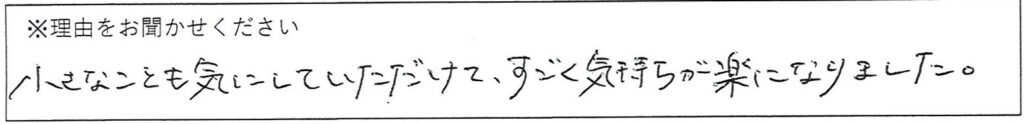 ※理由をお聞かせください
小さなことも気にしていただけて、すごく気持ちが楽になりました。